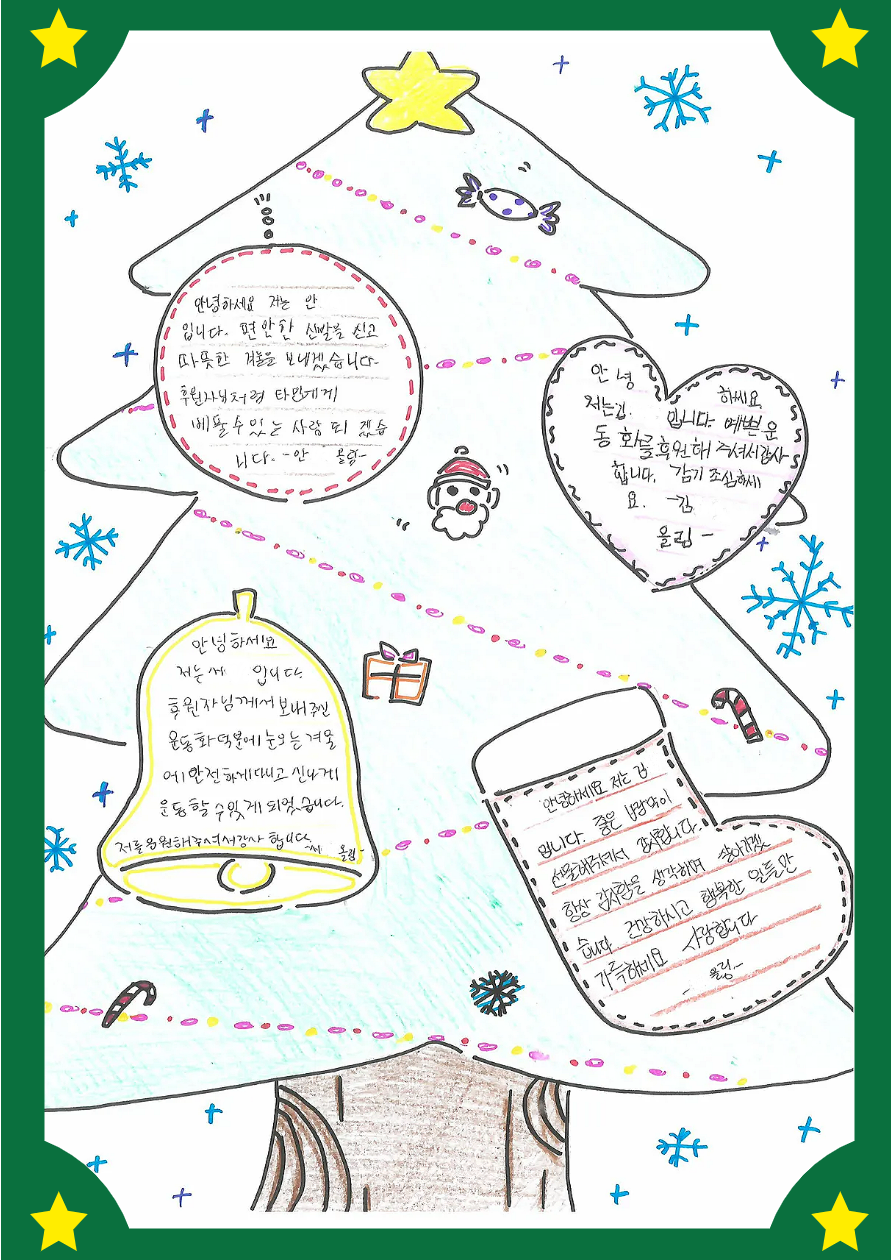 안녕하세요 저는 안
입니다. 편안한 신발을 신고
따뜻한 겨울을 보내겠습니다-
후원자님처럼 타인에게
베풀 수 있는 사람 되 겠습
니다. -안 올림-
안녕 하세요.
저는김 입니다. 예쁜 운
동화를 후원해 주셔서감사
합니다. 감기 조심하세
요. -김
올림-
안녕하세요
저는 서 입니다
후원자님께서 보내주신
운동화 덕분에 눈오는 겨울
에 안전하게 다니고 신나게
운동할 수 있게 되었습니다.
저를 응원해주셔서 감사 합니다. 올림-
안녕하세요 저는 김
입니다. 좋은
선물해주셔서 감사합니다.
항상 감사함을 생각하며 살아가겠
습니다 건강하시고 행복한 일들만
가득하세요 사랑합니다
- 올림-